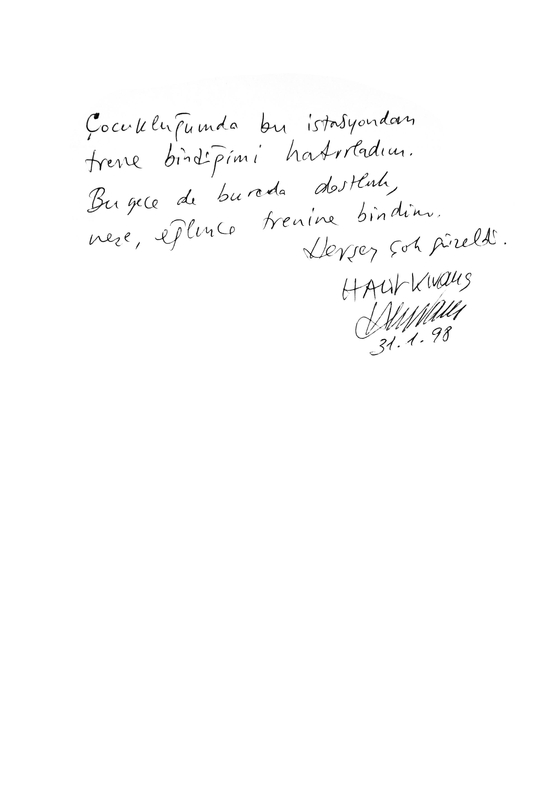 Çocukluğumda bu istasyondan
trene bindiğimi hatırladım.
Bu gece de burada dostluk,
neşe, eğlence trenine bindim.
Herşey çok güzeldi.
HALİT KIVANÇ
31.1.98